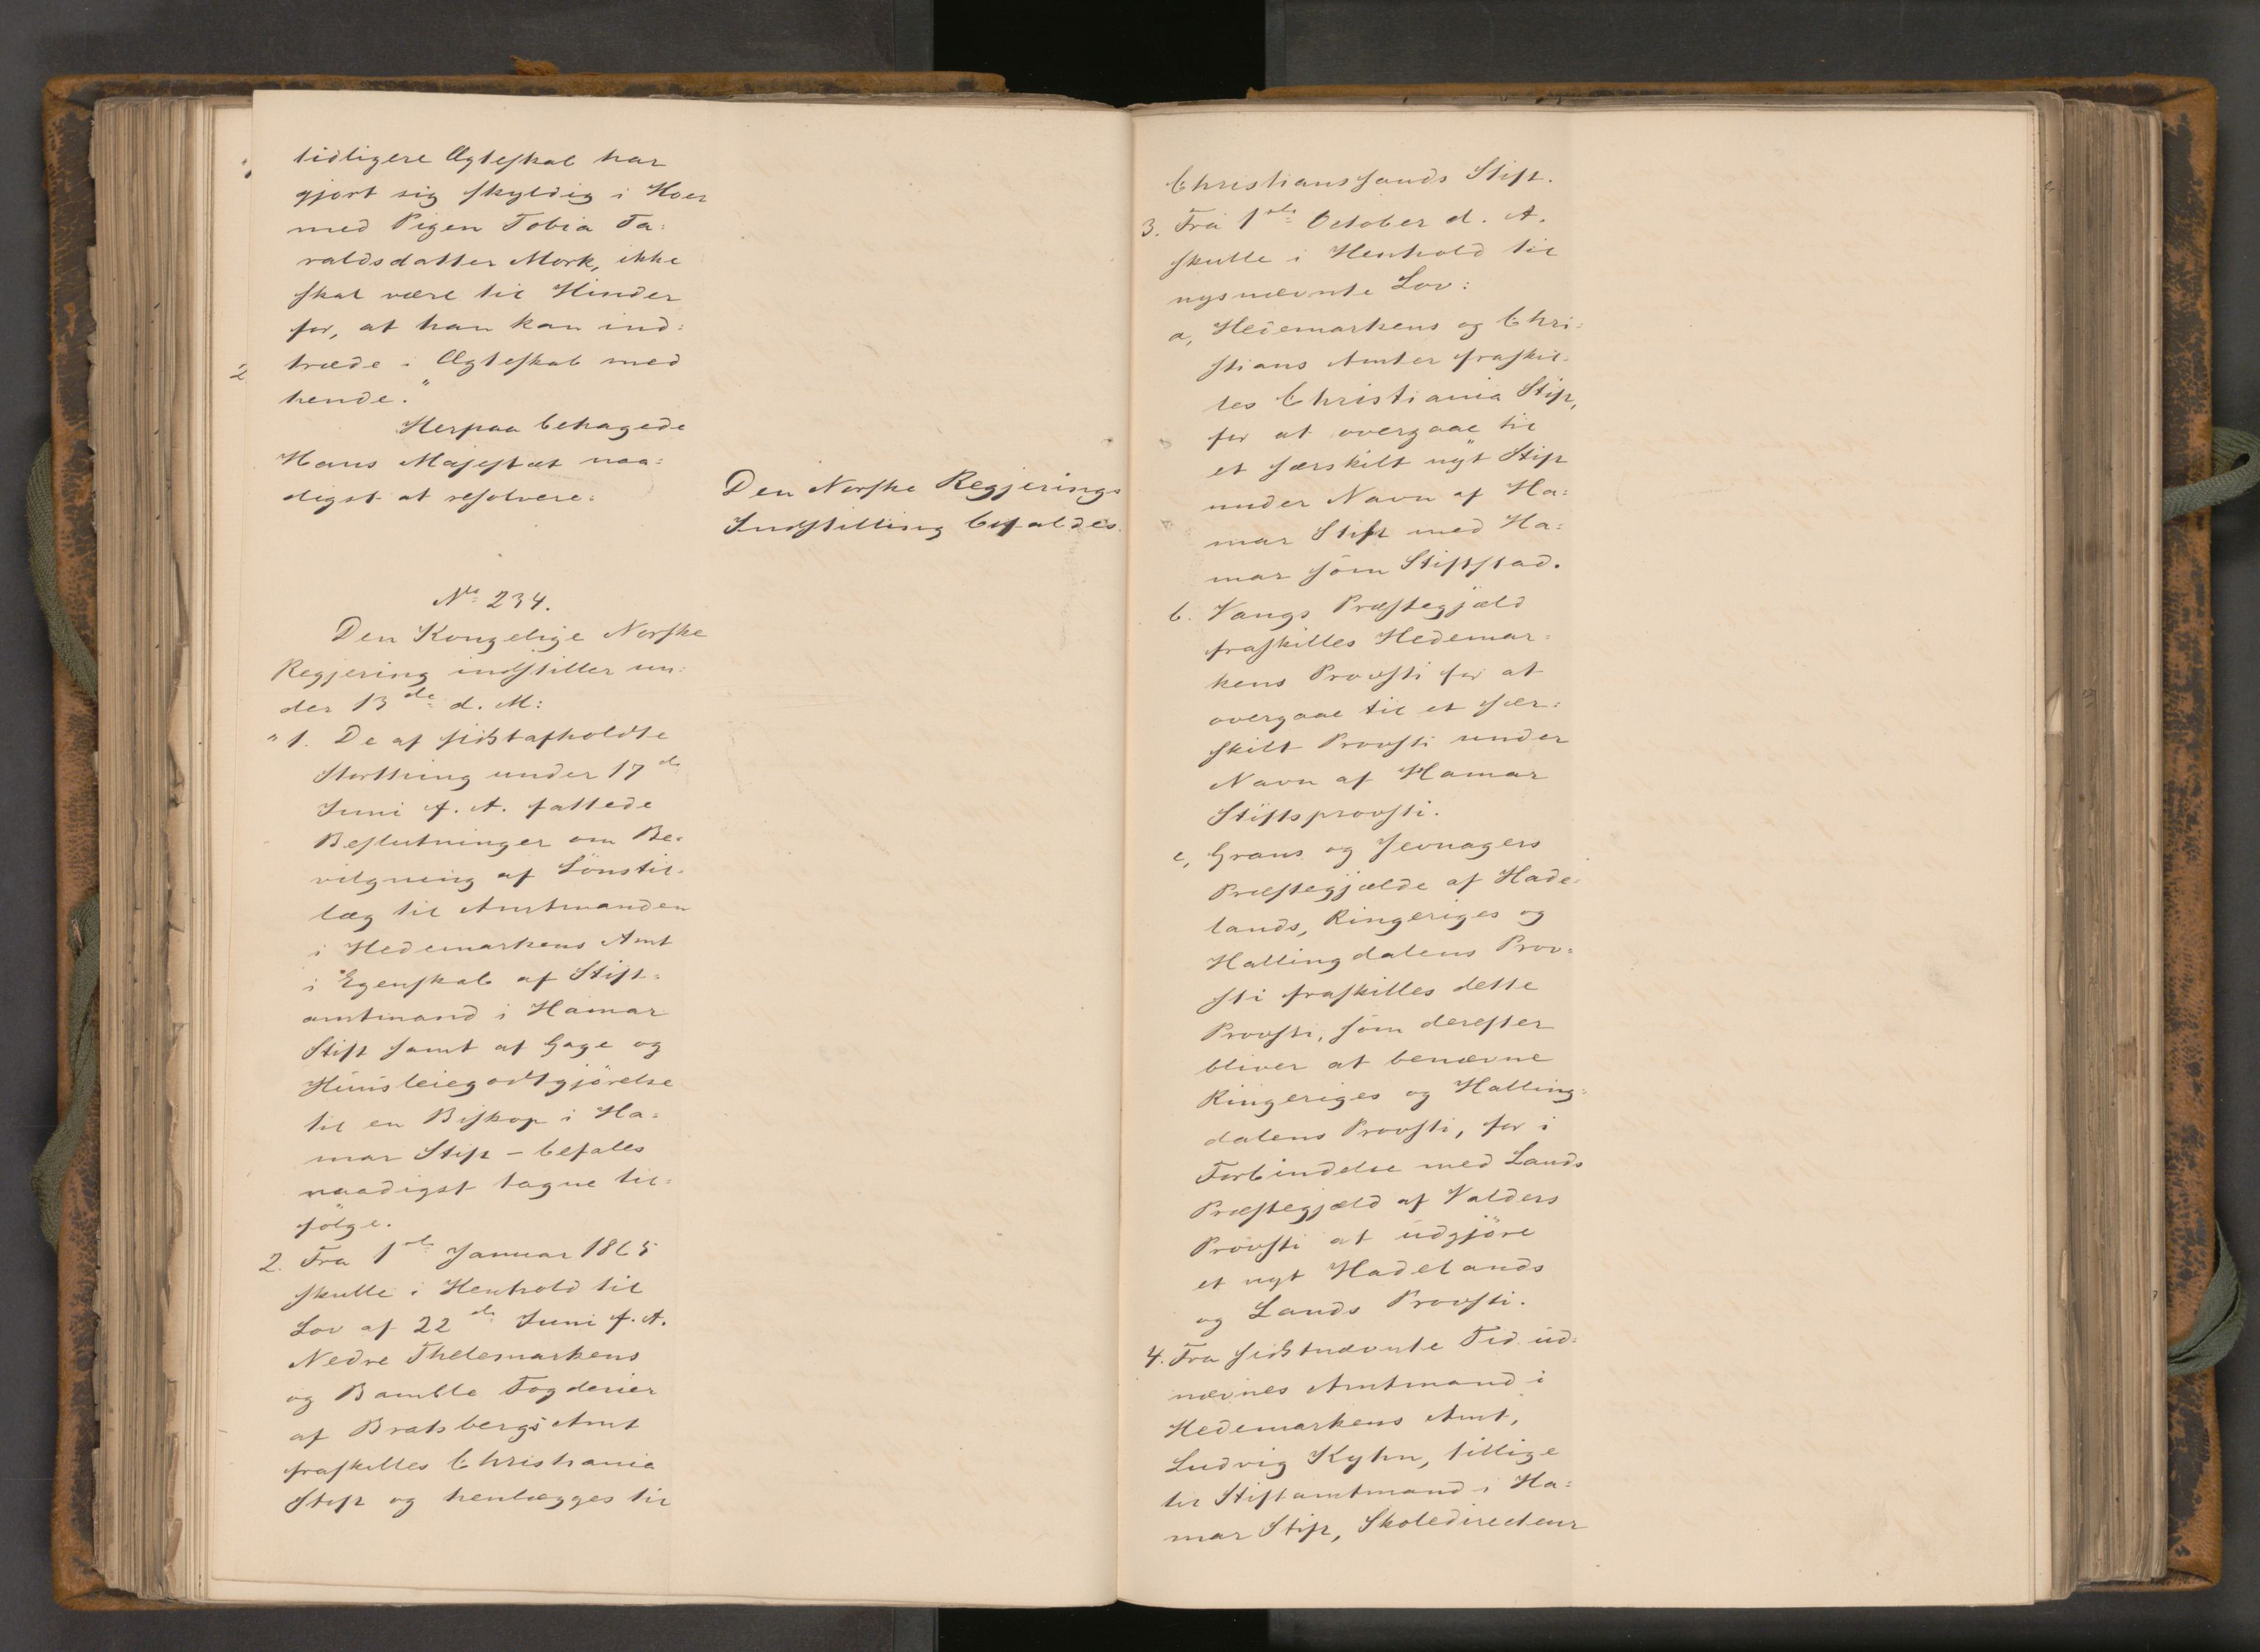 tidligere Ægteskab har
gjort sig skyldig i Hoer
med Pigen Tobia Ta:
raldsdatter Mork, ikke
skal være til Hinder
for, at han kan ind:
træde i Ægteskab med
hende."
Herpaa behagede
Hans Majestæt naa:
digst at resolvere:
Den Norske Regjerings
Indstilling bifaldes.
No 234.
Den Kongelige Norske
Regjering indstiller un:
der 13de d. M:
"1. De af sidstafholdte
Storthing under 17de
Juni f. A. fattede
Beslutninger om Be:
vilgning af Lönstil:
læg til Amtmanden
i Hedemarkens Amt
i Egenskab af Stift:
amtmand i Hamar
Stift samt af Gage og
Huusleiegodtgjörelse
til en Biskop i Ha:
mar Stift – befales
naadigst tagne til:
fölge.
2. Fra 1ste Januar 1865
skulle i Henhold til
Lov af 22de Juni f. A.
Nedre Thelemarkens
og Bamble Fogderier
af Bratsbergs Amt
fraskilles Christiania
Stift og henlægges til
Christianssands Stift.
3. Fra 1ste October d. A.
skulle i Henhold til
nysnævnte Lov:
a, Hedemarkens og Chri:
stians Amter fraskil:
les Christiania Stift,
for at overgaae til
et særskilt nyt Stift
under Navn af Ha:
mar Stift med Ha:
mar som Stiftsstad.
b. Vangs Præstegjæld
fraskilles Hedemar:
kens Provsti for at
overgaae til et sær:
skilt Provsti under
Navn af Hamar
Stiftsprovsti.
c, Grans og Jevnagers
Præstegjælde af Hade:
lands, Ringeriges og
Hallingdalens Prov:
sti fraskilles dette
Provsti, som derefter
bliver at benævne
Ringeriges og Halling:
dalens Provsti, for i
Forbindelse med Lands
Præstegjæld af Valders
Provsti at udgjöre
et nyt Hadelands
og Lands Provsti.
4. Fra sidstnævnte Tid ud:
nævnes Amtmand i
Hedemarkens Amt,
Ludvig Kyhn, tillige
til Stiftamtmand i Ha:
mar Stift, Skoledirecteur